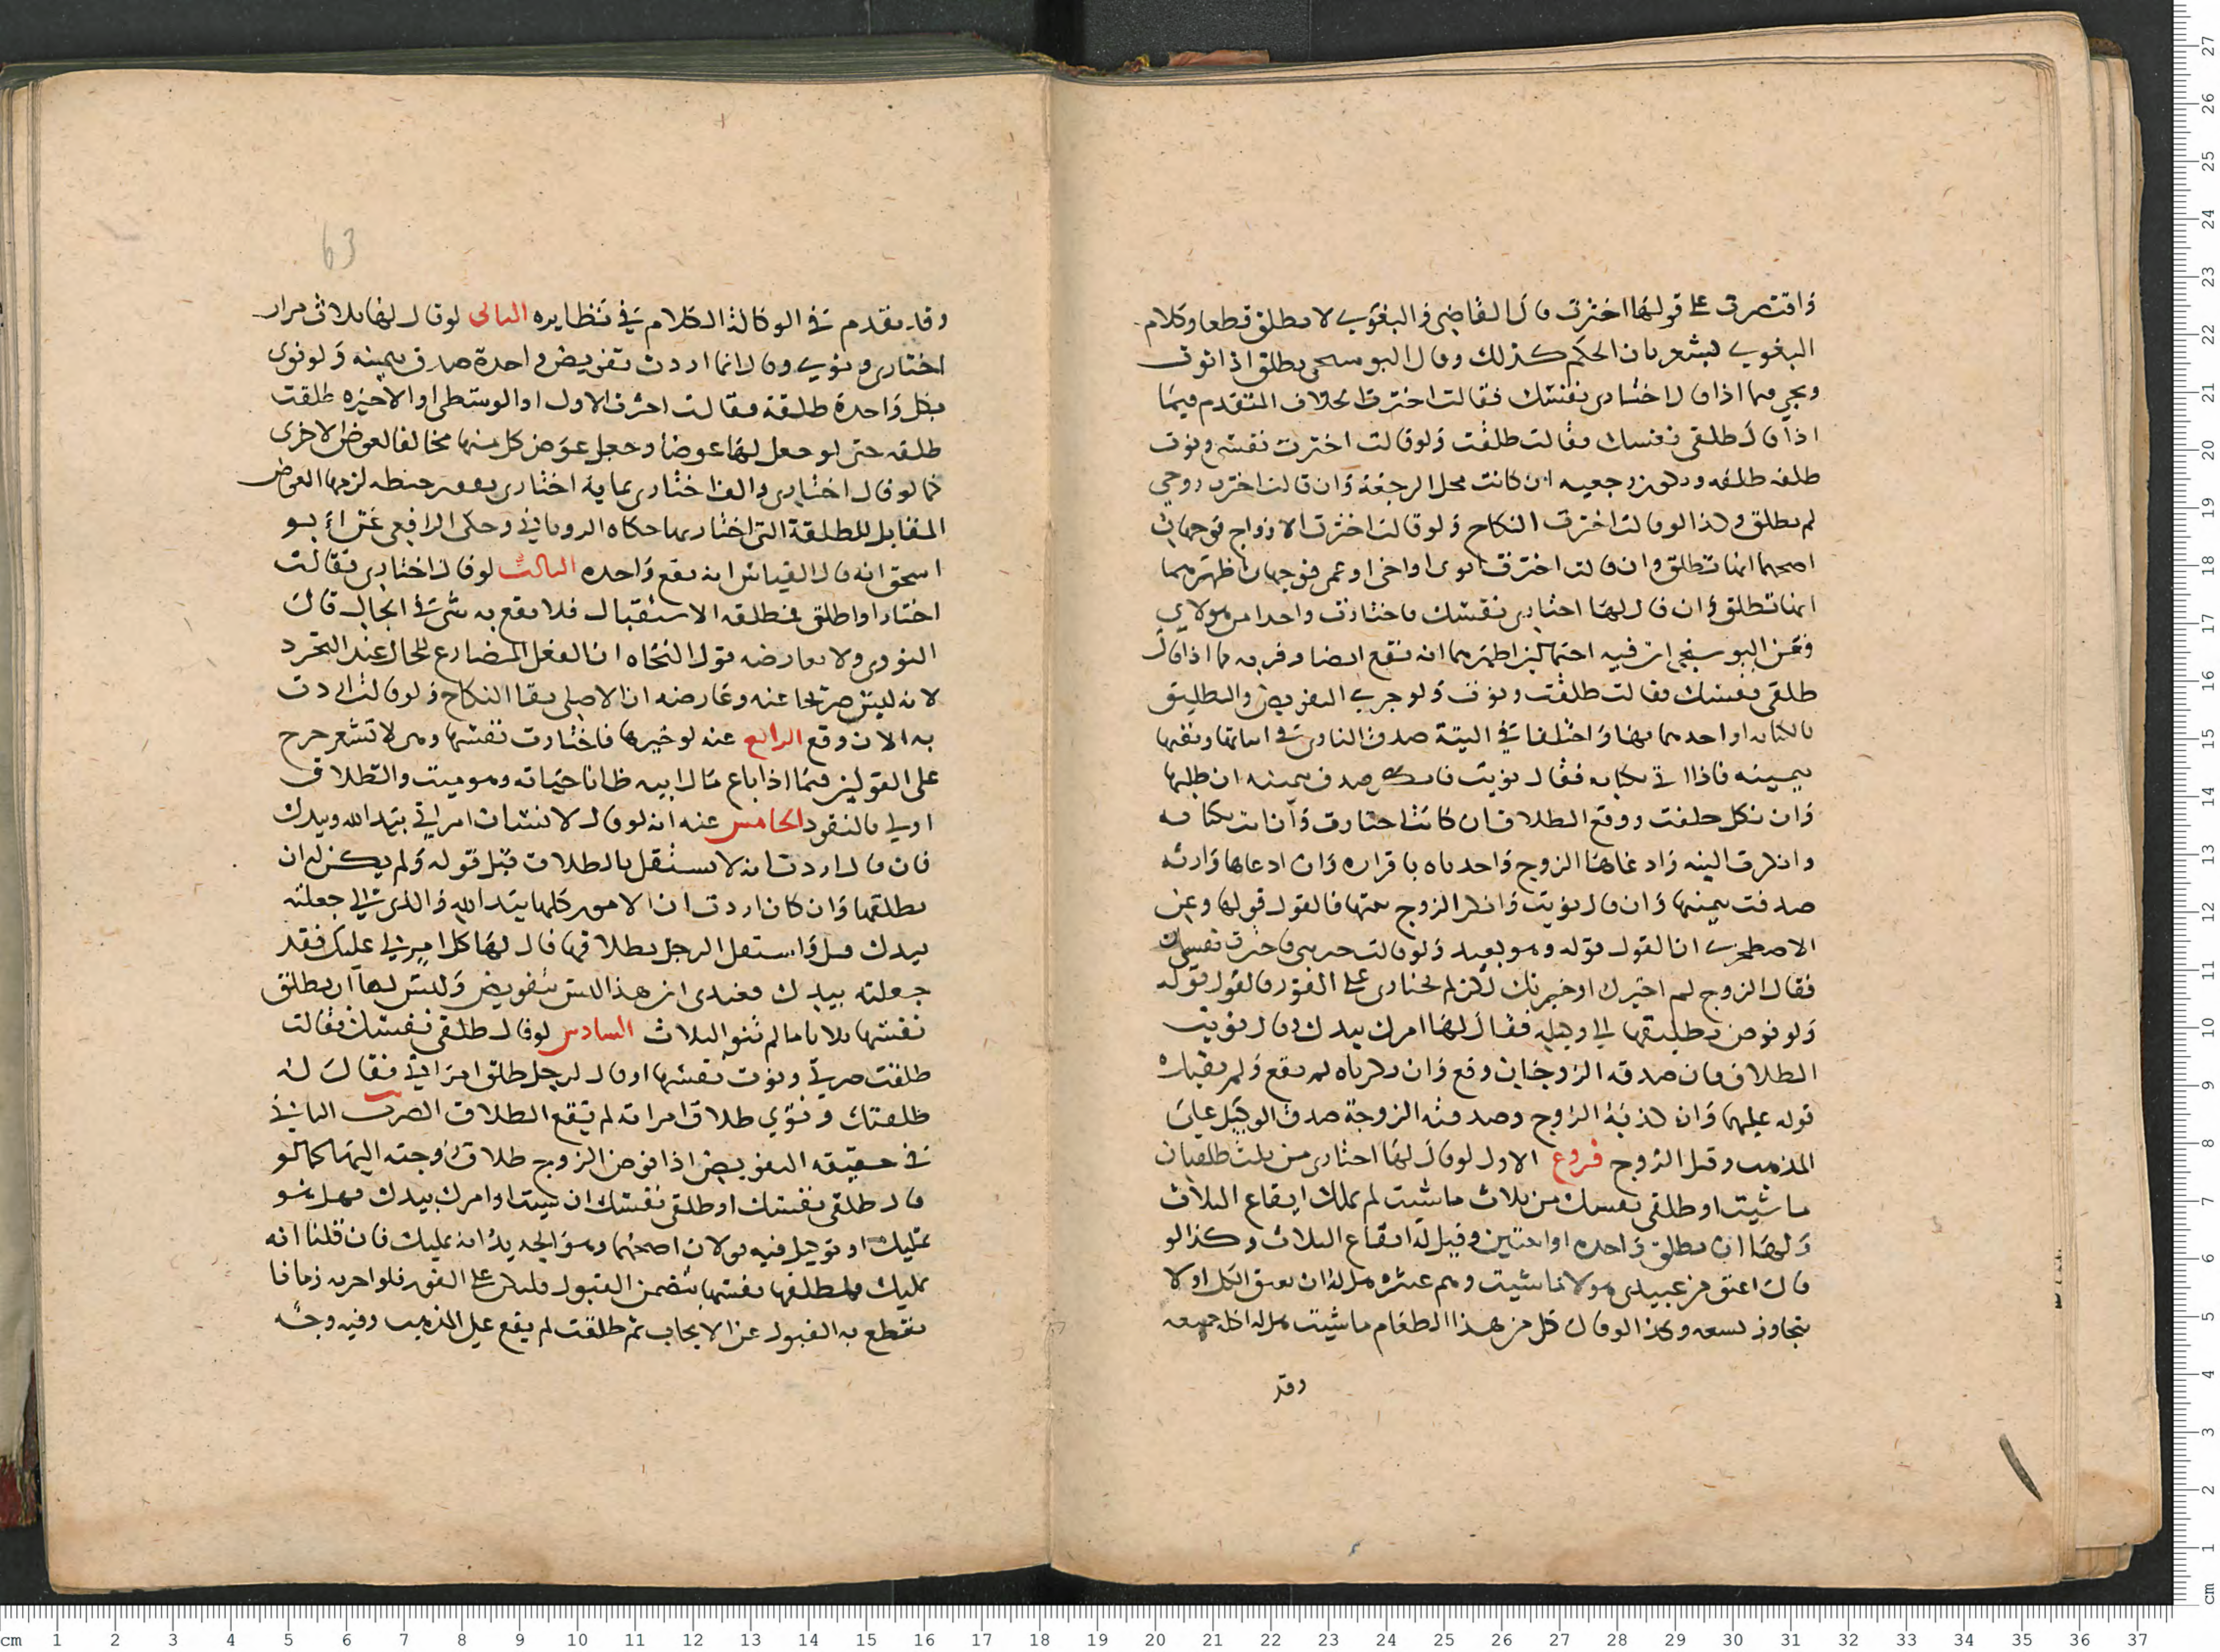 واقتصرت على قولها اخترت قال القاضي والبغوي لا تطلق قطعا وكلام
البغوي يشعر بان الحكم كذلك وقال البوسنجي تطلق اذا نوت
ويجري فيما اذا قال اختاري نفسك فقالت اخترت الخلاف المتقدم فيما
اذا قال طلقي نفسك فقالت طلقت ولو قالت اخترت نفسي ونوت
طلقه طلقه وتكون رجعيه ان كانت محل الرجعة وان قالت اخترت زوجي
لم تطلق وكذا لو قالت اخترت النكاح ولو قالت اخترت الازواج فوجهان
اصحهما انها تطلق وان قالت اخترت ابوي او اخي او عمي فوجهان اظهرهما
انها تطلق وان قال لها اختاري نفسك فاختارت واحدا من هولاي
فعن البوسنجي ان فيه احتمالين اظهرهما انه تقع ايضا وقربه مما اذا قال
طلقي نفسك فقالت طلقت ونوت ولو جرى التفويض والتطليق
بالكنايه او احدهما بها واختلفا في النية صدق الناوي في اثباتها ونفيها
بيمينه فاذا اتى بكنايه فقال نويت فانكر صدق بيمينه ان طلبها
وان نكل حلفت ووقع الطلاق ان كانت اختارت وان اتت بكنايه
وانكرت النيه وادعاها الزوج واخذناه باقراره وان ادعاها وارثه
صدقت بيمينها وان قال نويت وانكر الزوج نيتها فالقول قولها وعن
الاصطخري ان القول قوله وهو بعيد ولو قالت خيرتني فاخترت نفسي
فقال الزوج لم اخيرك او خيرتك لكن لم تختاري على الفور فالقول قوله
ولو فوض تطليقها الى وكيله فقال لها امرك بيدك وقال نويت
الطلاق فان صدقه الزوجان وقع وان ذكرناه لم يقع ولم يقبل
قوله عليهما وان كذبه الزوج وصدقته الزوجة صدق الوكيل على
المذهب وقيل الزوج فروع الاول لو قال لها اختاري من ثلث طلقات
ما شيت او طلقي نفسك من ثلاث ما شيت لم تملك ايقاع الثلاث
ولها ان تطلق واحده او اثنتين وقيل له ايقاع الثلاث وكذا لو
قال اعتق من عبيدي هولا ما شيت وهم عشره هل له ان يعتق الكل او لا
يتجاوز تسعه وكذا لو قال كل من هذا الطعام ما شيت هل له اكل جميعه
وقد
63
وقد تقدم في الوكالة الكلام في نظايره الثاني لو قال لها ثلاث مرار
اختاري ونوى وقال انما اردت تفويض واحدة صدق بيمينه ولو نوى
بكل واحدة طلقة فقالت اخترت الاولى او الوسطى او الاخيره طلقت
طلقه حتى لو جعل لها عوضا وجعل عوض كل منها مخالفا لعوض الاخرى
كما لو قال اختاري بالف اختاري بماية اختاري بقفيز حنطه لزمها العوض
المقابل للطلقة التي اختارتها حكاه الروياني وحكى الرافعي عن ابو
اسحق انه قال القياس انه يقع واحده الثالث لو قال اختاري فقالت
اختار او اطلق فمطلقه الاستقبال فلا يقع به شي في الحال قال
النووي ولا يعارضه قول النحاه ان الفعل المضارع للحال عند التجرد
لانه ليس صريحا عنه وعارضه ان الاصل بقا النكاح ولو قالت اردت
به الان وقع الرابع عنه لو خيرها فاختارت نفسها وهي لا تشعر خرج
على القولين فيما اذا باع مال ابيه ظانا حياته وهو ميت والطلاق
اولى بالنفوذ الخامس عنه انه لو قال لانسان امراتي بيد الله وبيدك
فان قال اردت انه لا يستقل بالطلاق قبل قوله ولم يكن له ان
يطلقها وان كان اردت ان الامور كلها بيد الله والذي لي جعلته
بيدك قبل واستقل الرجل بطلاقها قال لها كل امر لي عليك فقد
جعلته بيدك فعندي ان هذا ليس بتفويض وليس لها ان تطلق
نفسها ثلاثا ما لم تنو الثلاث السادس لو قال طلقي نفسك فقالت
طلقت صريتي ونوت نفسها او قال لرجل طلق امراتي فقال له
طلقتك ونوى طلاق امراته لم يقع الطلاق الضرب الثاني
في حقيقه التفويض اذا فوض الزوج طلاق زوجته اليها كما لو
قال طلقي نفسك او طلقي نفسك ان شيت او امرك بيدك فهل هو
تمليك او توكيل فيه قولان اصحهما وهو الجديد انه تمليك فان قلنا انه
تمليك فتطليقها نفسها يتضمن القبول فليكن على الفور فلو اخرته زمانا
ينقطع به القبول عن الايجاب ثم طلقت لم يقع على المذهب وفيه وجه